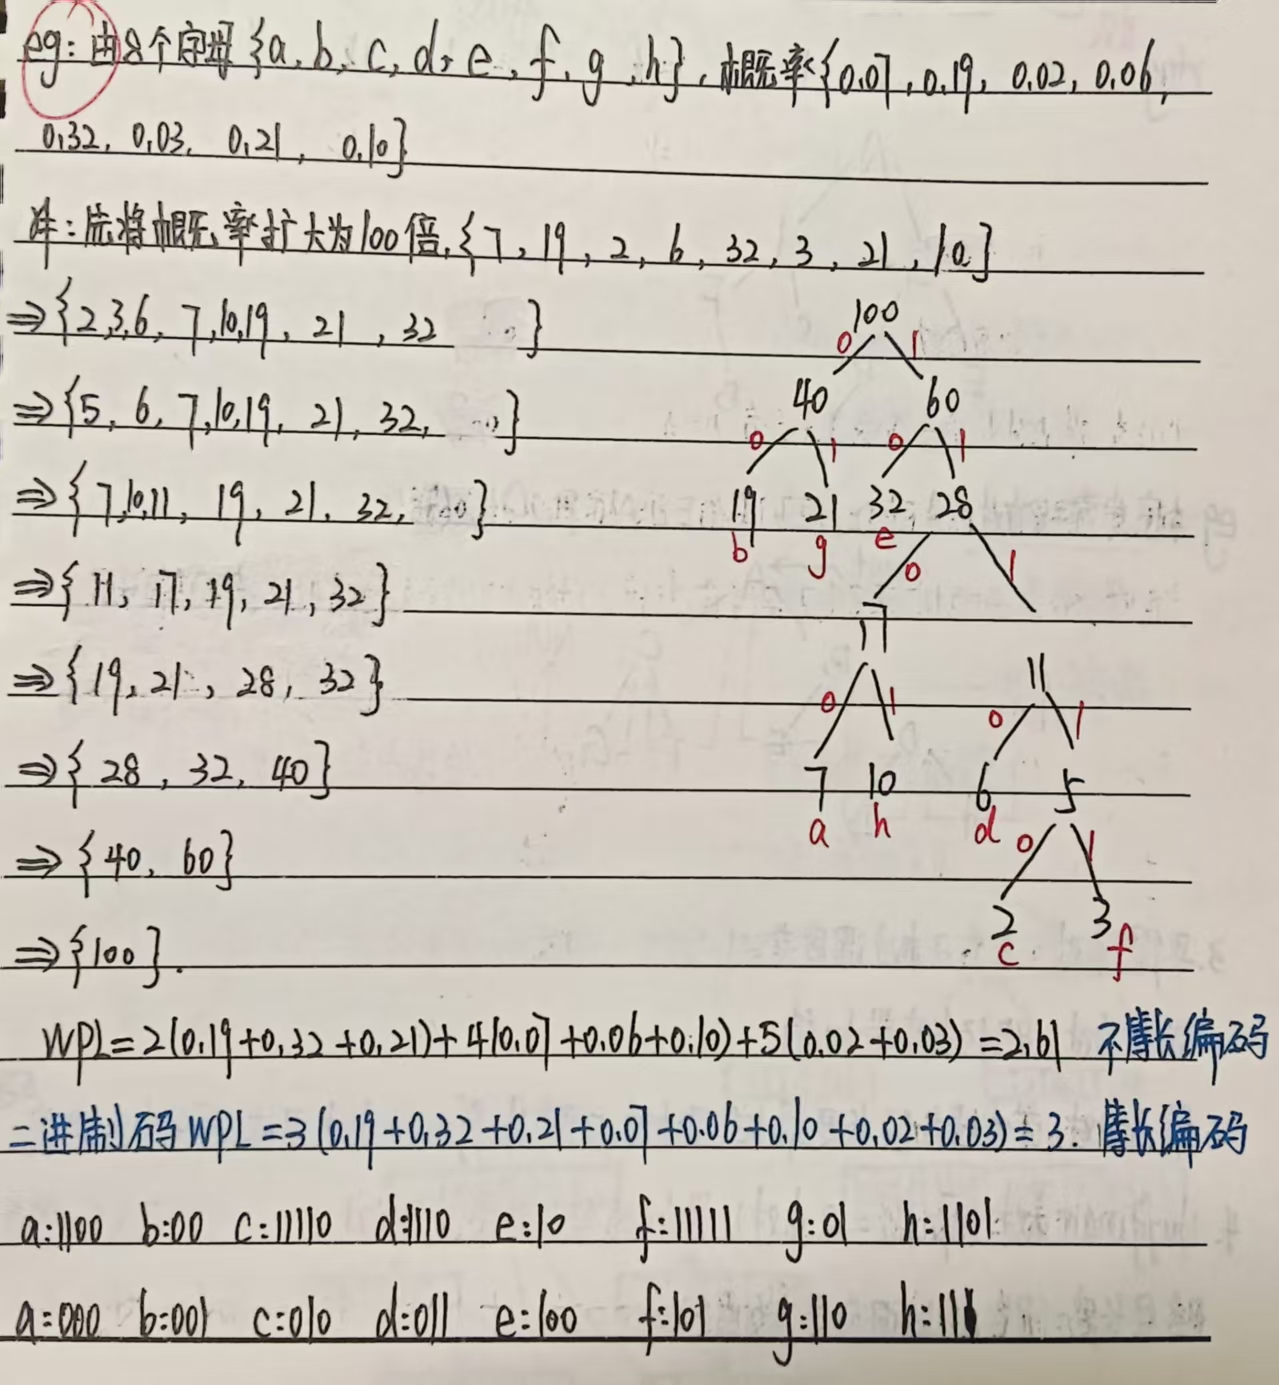 eg: 由8个字母{a, b, c, d, e, f, g, h}, 概率{0.07, 0.19, 0.02, 0.06,
0.32, 0.03, 0.21, 0.10}
先将概率扩大为100倍,{7, 19, 2, 6, 32, 3, 21, 10}
⇒{2,3,6, 7,10,19, 21, 32}
⇒{5, 6, 7,10,19, 21, 32, }
⇒{7,10,11, 19, 21, 32, }
⇒{11, 17, 19, 21, 32}
⇒{19, 21, 28, 32}
⇒{28, 32, 40}
⇒{40, 60}
⇒{100}.
100
0 1
40 60
0 1 0 1
19 21 32 28
b g e
0 1
17
11
0 1 0 1
7 10 6 5
a h d
0 1
2 3
c f
WPL=2(0.19+0.32+0.21)+4(0.07+0.06+0.10)+5(0.02+0.03)=2.61 不等长编码
二进制码WPL=3(0.19+0.32+0.21+0.07+0.06+0.10+0.02+0.03)=3. 等长编码
a:1100 b:00 c:11110 d:1110 e:10 f:11111 g:01 h:1101
a:000 b:001 c:010 d:011 e:100 f:101 g:110 h:111